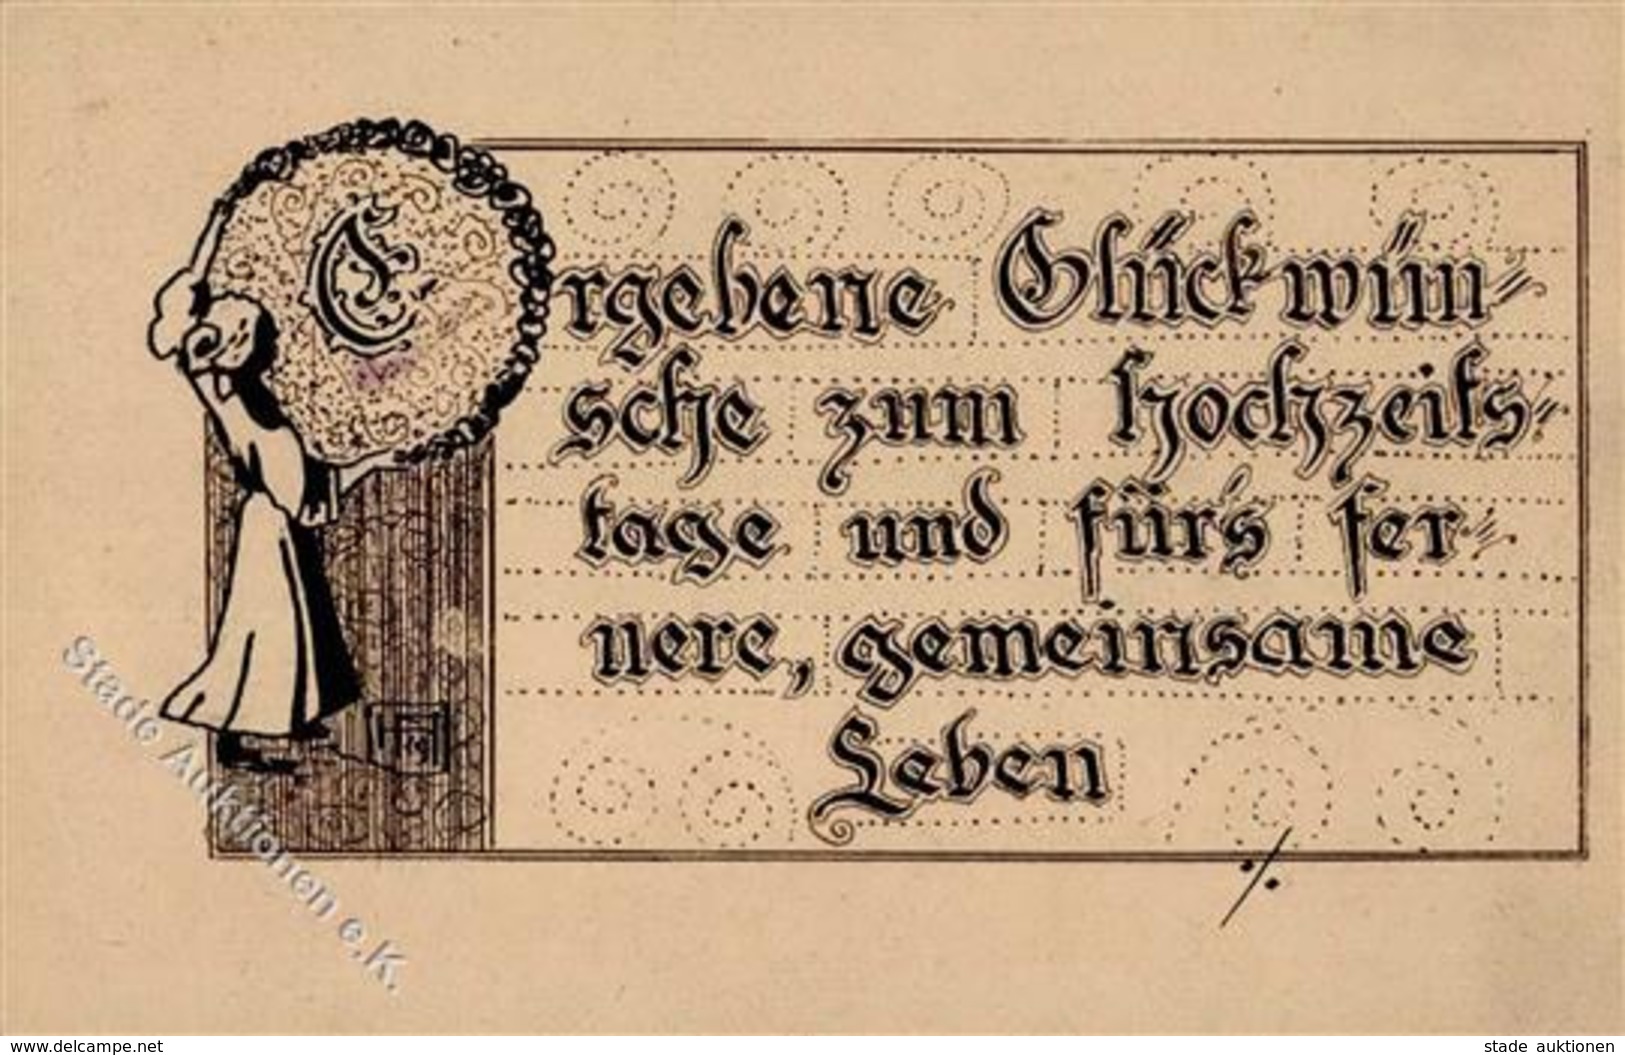 Ergebene Glückwün-
sche zum Hochzeits-
tage und für's fer-
nere, gemeinsame
Leben
Stade Auktionen e.K.
www.delcampe.net
stade auktionen